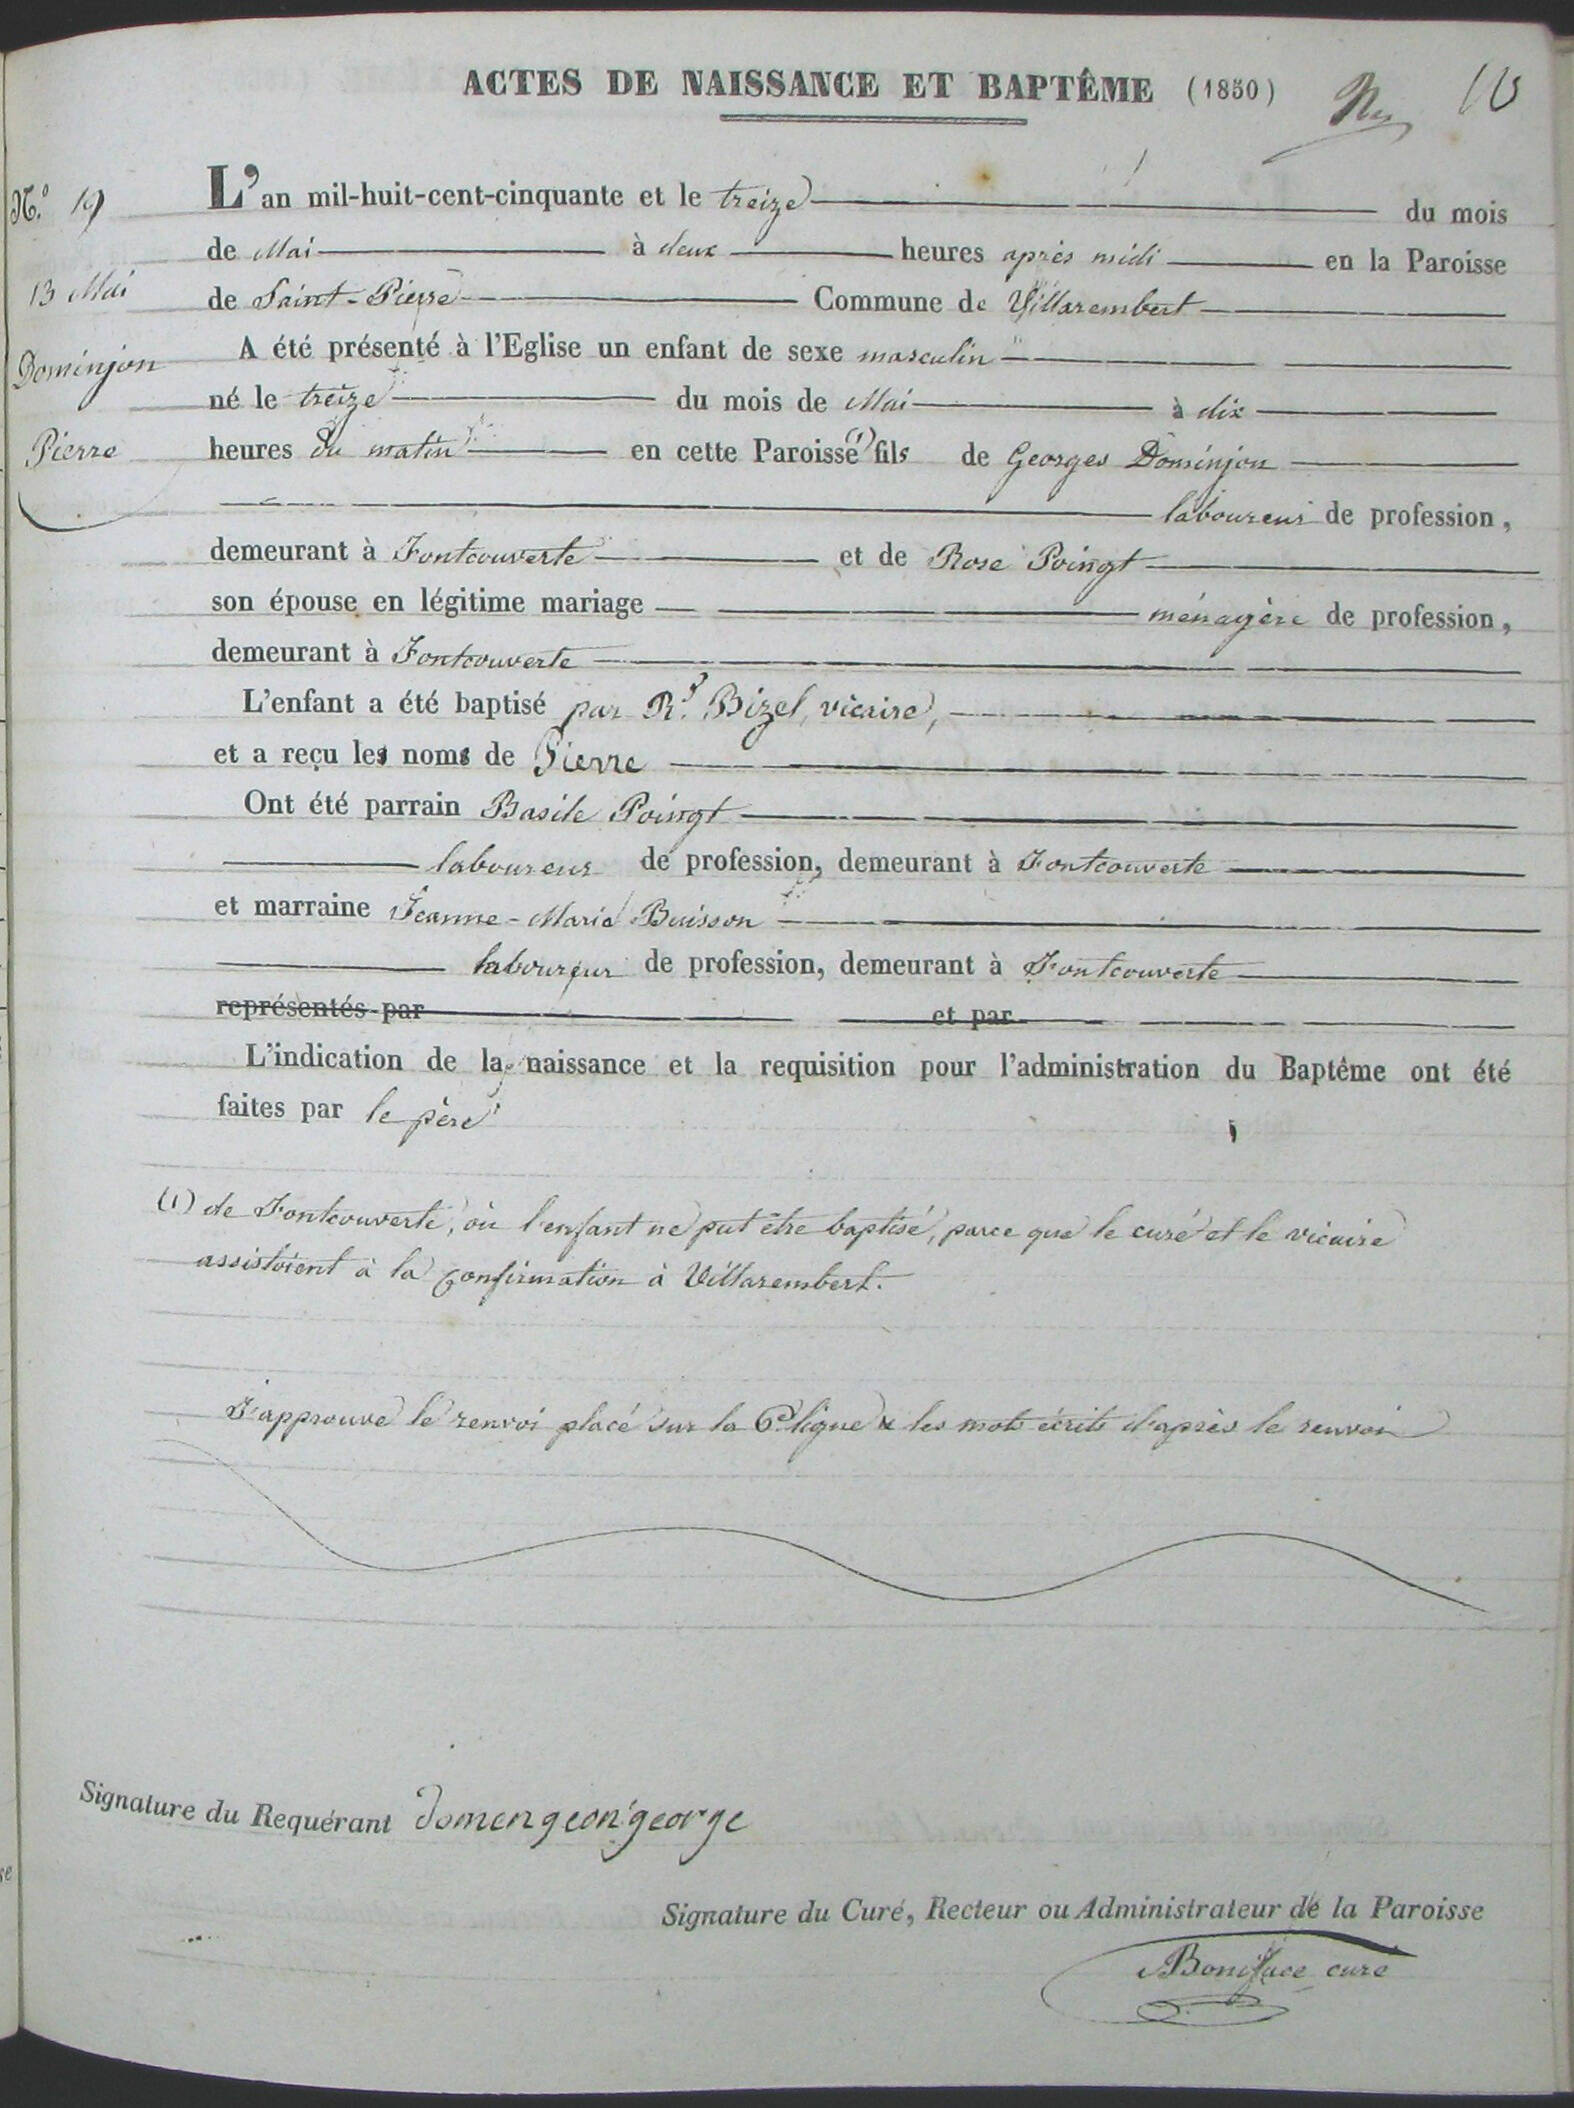 ACTES DE NAISSANCE ET BAPTÊME (1850)
N.º 19
13 Mai
Dominjon
Pierre
L'an mil-huit-cent-cinquante et le treize du mois
de Mai à deux heures après midi en la Paroisse
de Saint-Pierre Commune de Villarembert
A été présenté à l'Eglise un enfant de sexe masculin
né le treize du mois de Mai à dix
heures du matin en cette Paroisse (1) fils de Georges Dominjon
laboureur de profession,
demeurant à Fontcouverte et de Rose Poingt
son épouse en légitime mariage ménagère de profession,
demeurant à Fontcouverte
L'enfant a été baptisé par Rd. Bizel, vicaire,
et a reçu les noms de Pierre
Ont été parrain Basile Poingt
laboureur de profession, demeurant à Fontcouverte
et marraine Jeanne-Marie Buisson
laboureur de profession, demeurant à Fontcouverte
représentés par et par
L'indication de la naissance et la requisition pour l'administration du Baptême ont été
faites par le père
(1) de Fontcouverte, où l'enfant ne put être baptisé, parce que le curé et le vicaire
assistoient à la confirmation à Villarembert.
J'approuve le renvoi placé sur la 6e ligne & les mots écrits d'après le renvoi
Signature du Requérant domengeon george
Signature du Curé, Recteur ou Administrateur de la Paroisse
Boniface curé